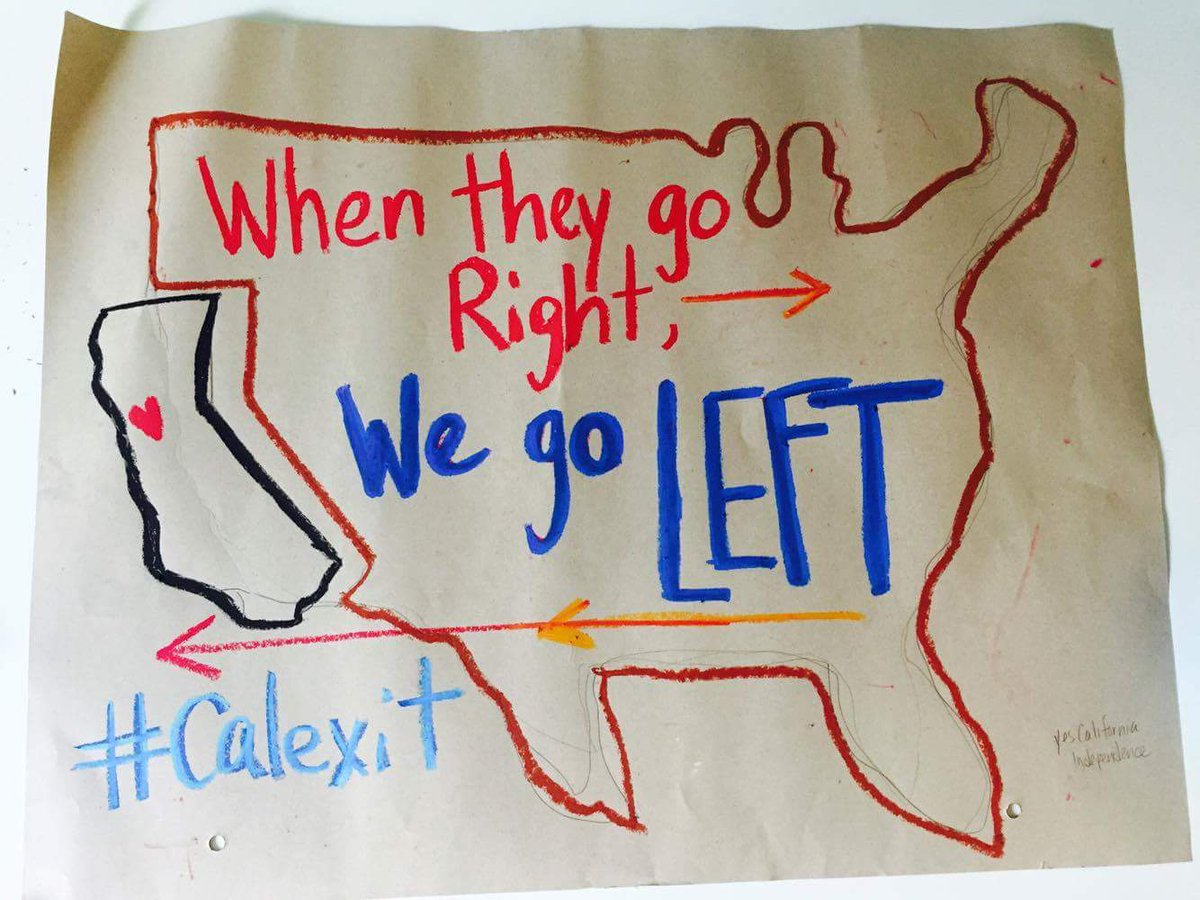 When they go
Right,
We go LEFT
#Calexit
yes.California
Independence